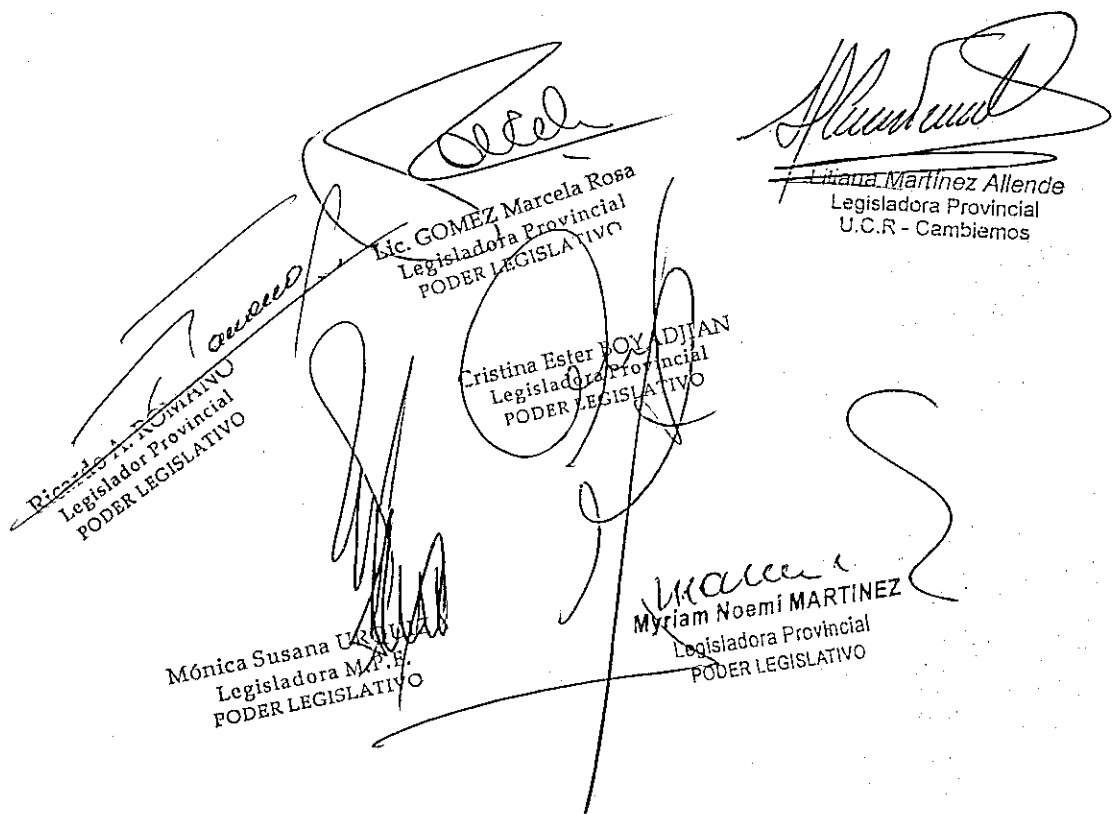 Lic. GOMEZ Marcela Rosa
Legisladora Provincial
PODER LEGISLATIVO
Liliana Martínez Allende
Legisladora Provincial
U.C.R - Cambiemos
Ricardo A. ROMANO
Legislador Provincial
PODER LEGISLATIVO
Cristina Ester BOYADJIAN
Legisladora Provincial
PODER LEGISLATIVO
Mónica Susana
Legisladora M.P.F.
PODER LEGISLATIVO
Myriam Noemí MARTINEZ
Legisladora Provincial
PODER LEGISLATIVO